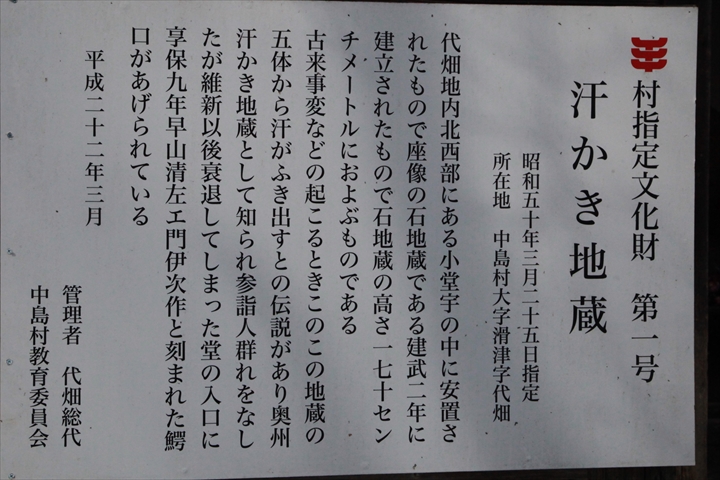 村指定文化財　第一号
汗かき地蔵
昭和五十年三月二十五日指定
所在地　中島村大字滑津字代畑
代畑地内北西部にある小堂宇の中に安置さ
れたもので座像の石地蔵である建武二年に
建立されたもので石地蔵の高さ一七十セン
チメートルにおよぶものである
古来事変などの起こるときこのこの地蔵の
五体から汗がふき出すとの伝説があり奥州
汗かき地蔵として知られ参詣人群れをなし
たが維新以後衰退してしまった堂の入口に
享保九年早山清左エ門伊次作と刻まれた鰐
口があげられている
平成二十二年三月
管理者　代畑総代
中島村教育委員会